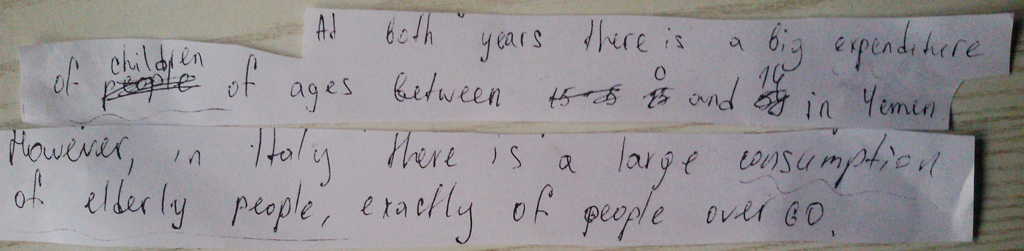 At both years there is a big expenditere
of children of ages between 0 and 14 in Yemen
However, in Italy there is a large consumption
of elderly people, exactly of people over 60.